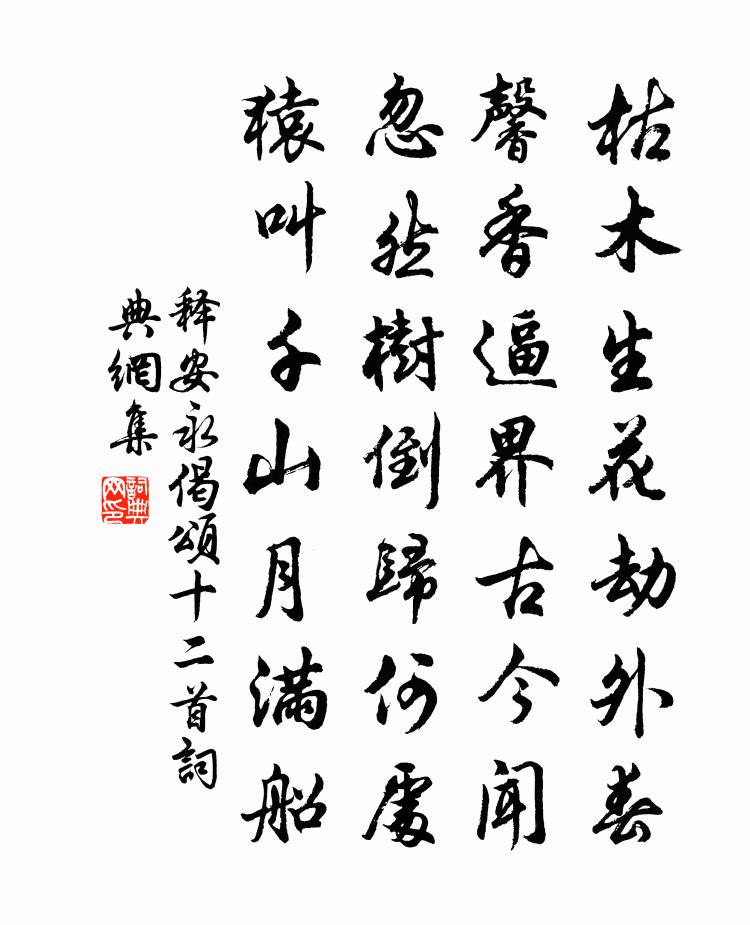 枯木生花劫外春
馨香逼界古今聞
忽然樹倒歸何處
猿叫千山月滿船
释安永偈頌十二首詞
典網集
詞典网印